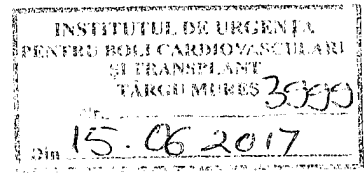 INSTITUTUL DE URGENȚA
PENTRU BOLI CARDIOVASCULARI
ȘI TRANSPLANT
TÂRGU MUREȘ
Nr. 3999
Din 15.06 2017